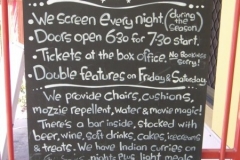 • We screen every night (during the season)
• Doors open 6:30 for 7:30 start.
• Tickets at the box office. No Bookings Sorry!
• Double features on Friday & Saturday
We provide chairs, cushions,
mozzie repellent, water & movie magic!
There's a bar inside, stocked with
beer, wine, soft drinks, cakes, icecreams
& treats. We have Indian curries on
nights plus light meals